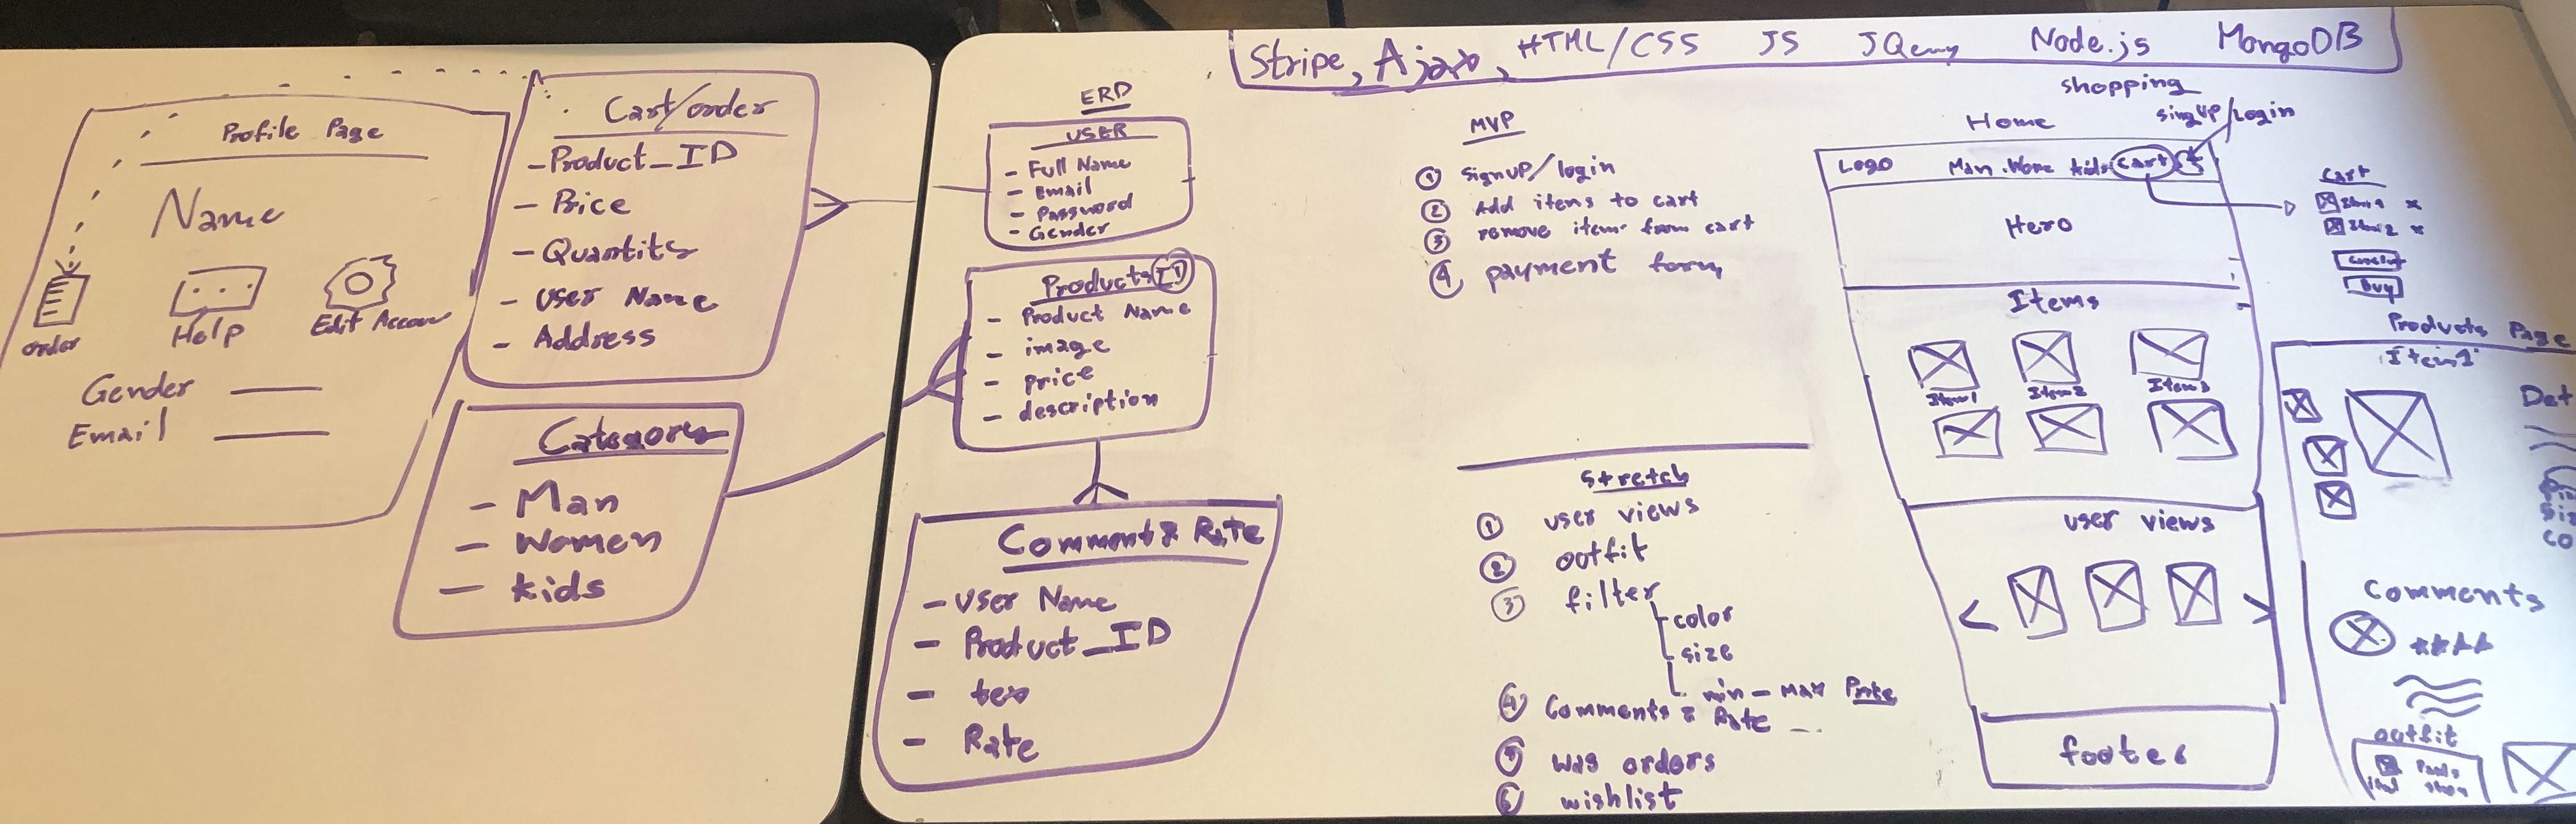 Stripe, Ajax, HTML/CSS JS JQuery Node.js MongoDB
Profile Page
Name
order
Help
Edit Accoun
Gender
Email
Cart/order
- Product_ID
- Price
- Quantity
- User Name
- Address
Category
- Man
- Women
- kids
ERD
USER
- Full Name
- Email
- Password
- Gender
Products ID
- Product Name
- image
- price
- description
Comment & Rate
- User Name
- Product_ID
- tex
- Rate
MVP
1 signup/login
2 Add items to cart
3 remove item from cart
4 payment form
stretch
1 user views
2 outfit
3 filter
color
size
min - max Price
4 Comments & Rate
5 was orders
6 wishlist
shopping
Home
singUP/Login
Logo Man . Wome kids Cart
Hero
Items
Item1 Item2 Item3
user views
< >
footer
Cart
Item1 x
Item2 x
buy
Products Page
Item1
Det
Siz
Co
Comments
outfit